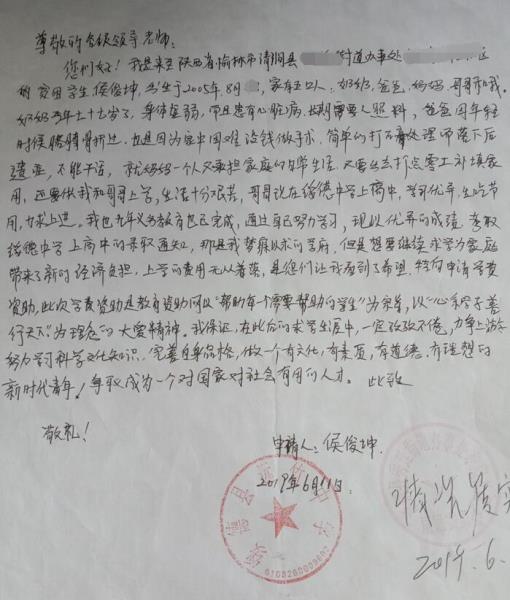 尊敬的各级领导老师:
您们好!我是来至陕西省榆林市清涧县 街道办事处 区
的贫困学生侯俊坤,出生于2005年8月 ,家有五口人:奶奶,爸爸,妈妈,哥哥和我。
奶奶今年七十七岁了,身体虚弱,常年患有心脏病,长期需要人照料,爸爸因年轻
时候腰椎骨折过,也是因为家中困难没钱做手术,简单的打石膏处理而落下后
遗症,不能干活,就妈妈一个人又承担家庭的日常生活,又要出去打点零工补填家
用,还要供我和哥哥上学,生活十分艰苦,哥哥现在绥德中学上高中,学习优异,省吃节
用,力求上进。我也九年义务教育已完成,通过自己努力学习,现以优异的成绩,考取
绥德中学上高中的录取通知,那是我梦寐以求的学府,但是想要继续求学为家庭
带来了新的经济负担,上学的费用无从着落,是您们让我看到了希望,特向申请学费
资助,此次学费资助是教育资助何以“帮助每一个需要帮助的学生”为宗旨,以“心系学子善
行天下”为理念的大爱精神,我保证,在此后的求学生涯中,一定孜孜不倦,力争上游
努力学习科学文化知识,完善自身品格,做一个有文化,有素质,有道德,有理想的
新时代青年!争取成为一个对国家对社会有用的人才。 此致
敬礼!
申请人:侯俊坤.
2019年6月11日.
绥德县 中学
情况属实
2019.6.